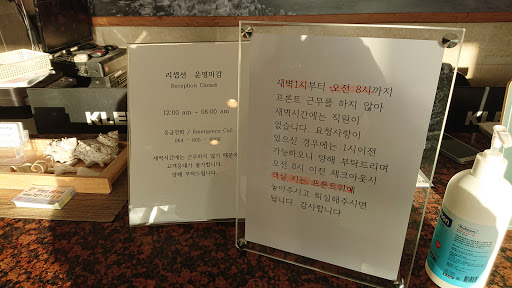 리셉션 운영마감
Reception Closed
12:00 am ~ 08:00 am
응급전화 / Emergency Call
새벽시간에는 근무하지 않기 때문에
고객응대가 불가합니다.
양해 부탁드립니다.
새벽1시부터 오전 8시까지
프론트 근무를 하지 않아
새벽시간에는 직원이
없습니다. 요청사항이
있으신 경우에는 1시이전
가능하오니 양해 부탁드리며
오전 8시 이전 체크아웃시
객실 키는 프론트위에
놓아주시고 퇴실해주시면
됩니다. 감사합니다